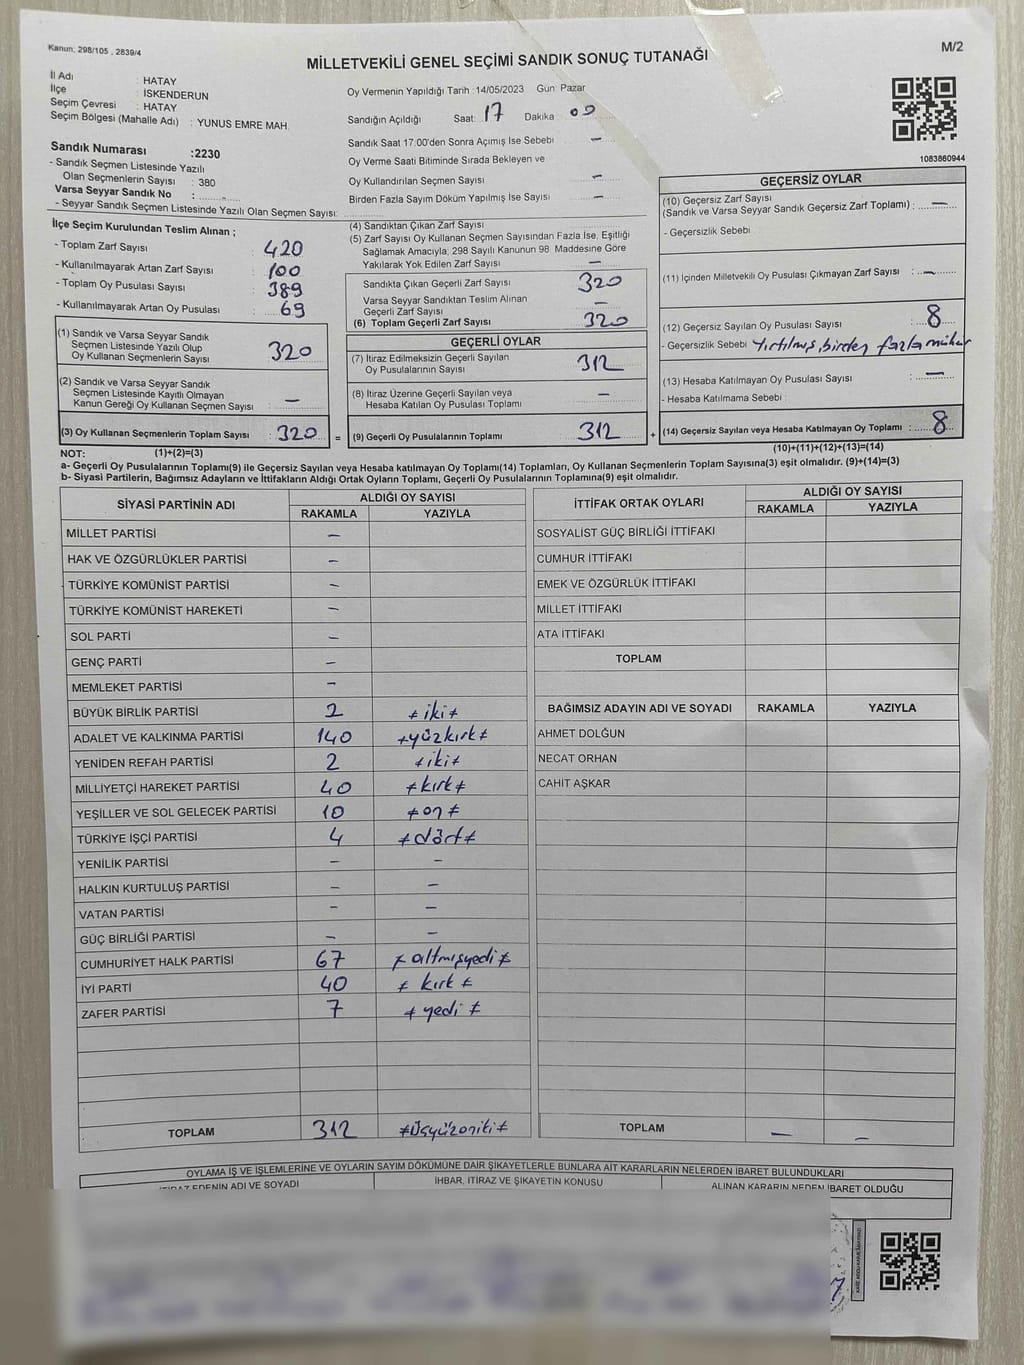 Kanun; 298/105 , 2839/4
M/2
MİLLETVEKİLİ GENEL SEÇİMİ SANDIK SONUÇ TUTANAĞI
İl Adı : HATAY
İlçe : İSKENDERUN
Seçim Çevresi : HATAY
Seçim Bölgesi (Mahalle Adı) : YUNUS EMRE MAH.
Oy Vermenin Yapıldığı Tarih : 14/05/2023 Gün: Pazar
Sandığın Açıldığı Saat: 17 Dakika 00
Sandık Saat 17:00'den Sonra Açımış İse Sebebi : —
Oy Verme Saati Bitiminde Sırada Bekleyen ve
Oy Kullandırılan Seçmen Sayısı : —
Birden Fazla Sayım Döküm Yapılmış İse Sayısı : —
1083860944
Sandık Numarası :2230
- Sandık Seçmen Listesinde Yazılı
Olan Seçmenlerin Sayısı : 380
Varsa Seyyar Sandık No :
- Seyyar Sandık Seçmen Listesinde Yazılı Olan Seçmen Sayısı:
İlçe Seçim Kurulundan Teslim Alınan ;
- Toplam Zarf Sayısı : 420
- Kullanılmayarak Artan Zarf Sayısı : 100
- Toplam Oy Pusulası Sayısı : 389
- Kullanılmayarak Artan Oy Pusulası : 69
(1) Sandık ve Varsa Seyyar Sandık
Seçmen Listesinde Yazılı Olup
Oy Kullanan Seçmenlerin Sayısı : 320
(2) Sandık ve Varsa Seyyar Sandık
Seçmen Listesinde Kayıtlı Olmayan
Kanun Gereği Oy Kullanan Seçmen Sayısı : —
(3) Oy Kullanan Seçmenlerin Toplam Sayısı : 320
(4) Sandıktan Çıkan Zarf Sayısı
(5) Zarf Sayısı Oy Kullanan Seçmen Sayısından Fazla İse, Eşitliği
Sağlamak Amacıyla; 298 Sayılı Kanunun 98. Maddesine Göre
Yakılarak Yok Edilen Zarf Sayısı : —
Sandıkta Çıkan Geçerli Zarf Sayısı : 320
Varsa Seyyar Sandıktan Teslim Alınan
Geçerli Zarf Sayısı : —
(6) Toplam Geçerli Zarf Sayısı : 320
GEÇERLİ OYLAR
(7) İtiraz Edilmeksizin Geçerli Sayılan
Oy Pusulalarının Sayısı : 312
(8) İtiraz Üzerine Geçerli Sayılan veya
Hesaba Katılan Oy Pusulası Toplamı : —
= (9) Geçerli Oy Pusulalarının Toplamı : 312
GEÇERSİZ OYLAR
(10) Geçersiz Zarf Sayısı
(Sandık ve Varsa Seyyar Sandık Geçersiz Zarf Toplamı) : —
- Geçersizlik Sebebi
(11) İçinden Milletvekili Oy Pusulası Çıkmayan Zarf Sayısı : —
(12) Geçersiz Sayılan Oy Pusulası Sayısı : 8
- Geçersizlik Sebebi Yırtılmış, birden fazla mühür
(13) Hesaba Katılmayan Oy Pusulası Sayısı : —
- Hesaba Katılmama Sebebi
+ (14) Geçersiz Sayılan veya Hesaba Katılmayan Oy Toplamı : 8
NOT: (1)+(2)=(3)
(10)+(11)+(12)+(13)=(14)
a- Geçerli Oy Pusulalarının Toplamı(9) ile Geçersiz Sayılan veya Hesaba katılmayan Oy Toplamı(14) Toplamları, Oy Kullanan Seçmenlerin Toplam Sayısına(3) eşit olmalıdır. (9)+(14)=(3)
b- Siyasi Partilerin, Bağımsız Adayların ve İttifakların Aldığı Ortak Oyların Toplamı, Geçerli Oy Pusulalarının Toplamına(9) eşit olmalıdır.
SİYASİ PARTİNİN ADI ALDIĞI OY SAYISI
RAKAMLA YAZIYLA
MİLLET PARTİSİ —
HAK VE ÖZGÜRLÜKLER PARTİSİ —
TÜRKİYE KOMÜNİST PARTİSİ —
TÜRKİYE KOMÜNİST HAREKETİ —
SOL PARTİ —
GENÇ PARTİ —
MEMLEKET PARTİSİ —
BÜYÜK BİRLİK PARTİSİ 2 ≠iki≠
ADALET VE KALKINMA PARTİSİ 140 ≠yüzkırk≠
YENİDEN REFAH PARTİSİ 2 ≠iki≠
MİLLİYETÇİ HAREKET PARTİSİ 40 ≠kırk≠
YEŞİLLER VE SOL GELECEK PARTİSİ 10 ≠on≠
TÜRKİYE İŞÇİ PARTİSİ 4 ≠dört≠
YENİLİK PARTİSİ — —
HALKIN KURTULUŞ PARTİSİ — —
VATAN PARTİSİ — —
GÜÇ BİRLİĞİ PARTİSİ — —
CUMHURİYET HALK PARTİSİ 67 ≠altmışyedi≠
İYİ PARTİ 40 ≠kırk≠
ZAFER PARTİSİ 7 ≠yedi≠
TOPLAM 312 ≠üçyüzoniki≠
İTTİFAK ORTAK OYLARI ALDIĞI OY SAYISI
RAKAMLA YAZIYLA
SOSYALİST GÜÇ BİRLİĞİ İTTİFAKI
CUMHUR İTTİFAKI
EMEK VE ÖZGÜRLÜK İTTİFAKI
MİLLET İTTİFAKI
ATA İTTİFAKI
TOPLAM
BAĞIMSIZ ADAYIN ADI VE SOYADI RAKAMLA YAZIYLA
AHMET DOLĞUN
NECAT ORHAN
CAHİT AŞKAR
TOPLAM — —
OYLAMA İŞ VE İŞLEMLERİNE VE OYLARIN SAYIM DÖKÜMÜNE DAİR ŞİKAYETLERLE BUNLARA AİT KARARLARIN NELERDEN İBARET BULUNDUKLARI
İTİRAZ EDENİN ADI VE SOYADI İHBAR, İTİRAZ VE ŞİKAYETİN KONUSU ALINAN KARARIN NEDEN İBARET OLDUĞU